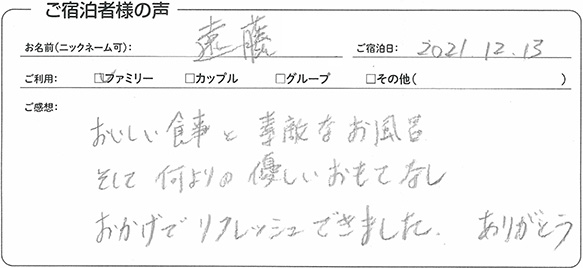 ご宿泊者様の声
お名前(ニックネーム可): 遠藤 ご宿泊日: 2021.12.13
ご利用: ☑ファミリー □カップル □グループ □その他( )
ご感想:
おいしい食事と 素敵なお風呂
そして 何よりの 優しいおもてなし
おかげで リフレッシュできました. ありがとう